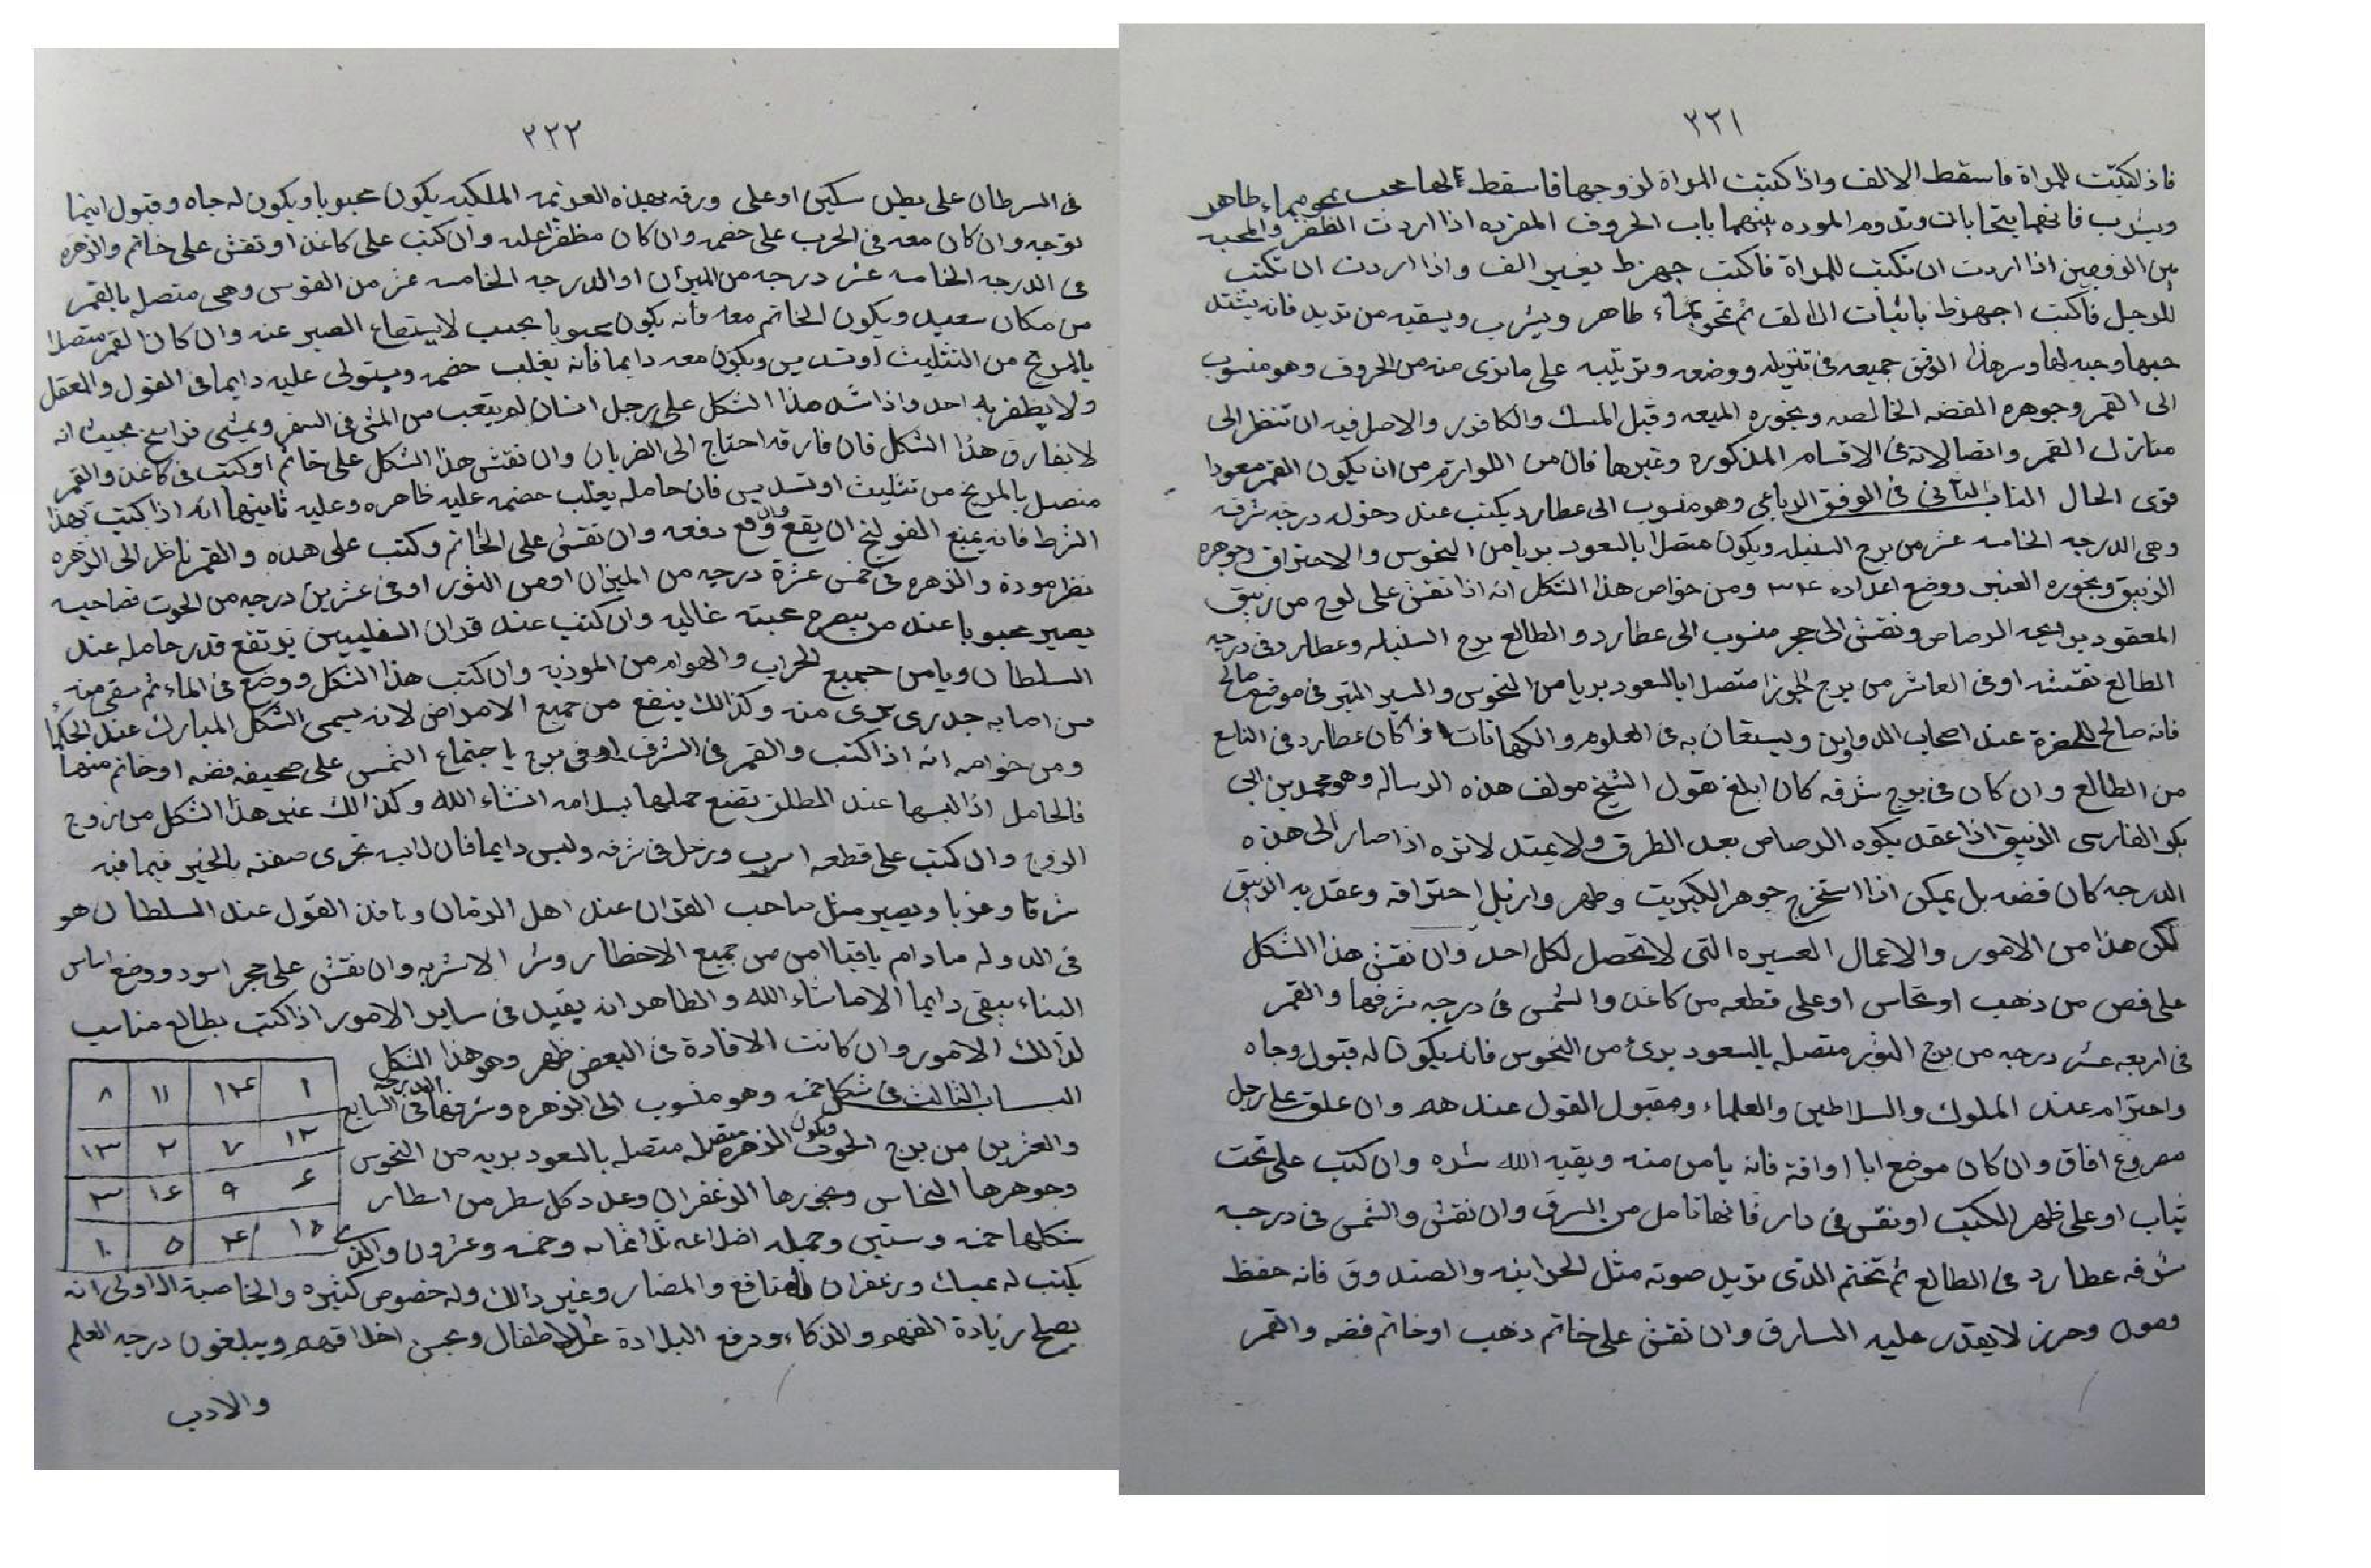 ٢٢١
فاذا كتبت للمراة فاسقط الالف واذا كتبت المراة لزوجها فاسقط بماء طاهر
ويشرب فانهما يتحابات وتدوم الموده بينهما باب الحروف المفرده اذا اردت الظفر والمحبه
بين الزوجين اذا اردت ان تكتب للمراة فاكتب جهزط بغير الف واذا اردت ان تكتب
للرجل فاكتب اجهزط باثبات الالف ثم تمحو بماء طاهر ويشرب ويسقيه من تريد فانه يشتد
حبها وحبه لها وسر هذا الوفق جميعه فى تنزيله ووضعه وترتيبه على ما ترى منه من الحروف وهو منسوب
الى القمر وجوهره الفضه الخالصه وبخوره الميعه وقيل المسك والكافور والاصل فيه ان تنظر الى
منازل القمر واتصالاته فى الاقسام المذكوره وغيرها فان من اللوازم من ان يكون القمر مسعودا
قوى الحال الباب الثانى فى الوفق الرباعى وهو منسوب الى عطارد يكتب عند دخوله درجه شرفه
وهى الدرجه الخامسه عشر من برج السنبله ويكون متصلا بالسعود بريا من النحوس والاحتراق وجوهره
الزئبق وبخوره العنبر ووضع اعداده ٣٤ ومن خواص هذا الشكل انه اذا نقش على لوح من زئبق
المعقود برايحه الرصاص ونقش الى حجر منسوب الى عطارد والطالع برج السنبله وعطارد فى درجه
الطالع نقشه او فى العاشر من برج الجوزا متصلا بالسعود بريا من النحوس والمسير المتبر فى موضع صالح
فانه صالح للحضرة عند اصحاب الدواوين ويستعان به فى العلوم والكهانات اذا كان عطارد فى التاسع
من الطالع وان كان فى برج شرفه كان ابلغ نقول الشيخ مولف هذه الرساله وهو محمد بن ابى
بكر الفارسى الزئبق اذا عقد بكوه الرصاص بعد الطرق ولا يمتد لانزه اذا صار الى هذه
الدرجه كان فضه بل يمكن اذا استخرج جوهر الكبريت وطهر وازيل احتراقه وعقد به الزئبق
لكن هذا من الامور والاعمال العسيره التى لا تحصل لكل احد وان نقش هذا الشكل
على فص من ذهب او نحاس او على قطعه من كاغد والشمس فى درجه شرفها والقمر
فى اربعه عشر درجه من برج الثور متصله بالسعود برئ من النحوس فانه يكون له قبول وجاه
واحترام عند الملوك والسلاطين والعلماء ومقبول القول عندهم وان علق على رجل
مصروع افاق وان كان موضع ابا اوافة فانه يامن منه ويقيه الله شره وان كتب على تحت
ثياب او على ظهر الكتب او نقش فى دار فانها تامن من السرق وان نقش والشمس فى درجه
شرفه عطارد فى الطالع ثم تختم الذى تريد صونه مثل الخزاينه والصندوق فانه حفظ
وصون وحرز لا يقدر عليه السارق وان نقش على خاتم ذهب او خاتم فضه والقمر
٢٢٢
فى السرطان على بطن سكين او على ورقه بهذه العزيمه الملكيه يكون محبوبا ويكون له جاه وقبول اينما
توجه وان كان معه فى الحرب على خصمه وان كان مظفرا عليه وان كتب على كاغد او نقش على خاتم والزهره
فى الدرجه الخامسه عشر درجه من الميزان او الدرجه الخامسه عشر من القوس وهى متصله بالقمر
من مكان سعيد ويكون الخاتم معه فانه يكون محبوبا بحيث لا يستطاع الصبر عنه وان كان القمر متصلا
بالمريخ من التثليث او تسديس ويكون معه دايما فانه يغلب خصمه ويستولى عليه دايما فى القول والعقل
ولا يظفر به احد واذا شد هذا الشكل على رجل انسان لم يتعب من المشى فى السفر ويمشى فراسخ بحيث انه
لا يفارق هذا الشكل فان فارقه احتاج الى الضربان وان نقش هذا الشكل على خاتم او كتب فى كاغد والقمر
متصل بالمريخ من تثليث او تسديس فان حامله يغلب خصمه عليه ظاهره وعليه ثانيها انه اذا كتب بهذا
الشرط فانه يمنع القولنج ان يقع وان وقع دفعه وان نقش على الخاتم وكتب على هذه والقمر ناظر الى الزهره
نظر مودة والزهره فى خمس عشرة درجه من الميزان او من الثور او فى عشرين درجه من الحوت فصاحبه
يصير محبوبا عند من يبصره محبته غاليه وان كتب عند قران السفليين يرتفع قدر حامله عند
السلطان ويامن جميع الحراب والهوام من الموذيه وان كتب هذا الشكل ووضع فى الماء ثم سقى منه
من اصابه جدرى برى منه وكذالك ينفع من جميع الامراض لانه يسمى الشكل المبارك عند الحكماء
ومن خواصه انه اذا كتب والقمر فى الشرف او فى برج يا جتماع الشمس على صحيفه فضه او خاتم منها
فالحامل اذا لبسها عند المطلق تضع حملها بسلامه انشاء الله وكذالك عنو هذا الشكل من زوج
الزوج وان كتب على قطعه اسرب وزحل فى شرفه وليس دايما فان لابه تجرى صفته بالخير فيما فيه
شرقا وغربا ويصير مثل صاحب القران عند اهل الزمان ونافذ القول عند السلطان هو
فى الدوله ما دام باقيا امن من جميع الاخطار وشر الاشربه وان نقش على حجر اسود ووضع اساس
البناء يبقى دايما الا ماشاء الله والظاهر انه يفيد فى ساير الامور اذا كتب بطالع مناسب
لذالك الامور وان كانت الافادة فى البعض ظهر وهو هذا الشكل
البساب الثالث فى شكل خمسه وهو منسوب الى الزهره وشرفها فى الدرجه السابع
والعشرين من برج الحوت ويكون الزهره متصله بالسعود بريه من النحوس
وجوهرها النحاس وبخورها الزعفران وعدد كل سطر من اسطار
شكلها خمسه وستين وجمله اضلاعه ثلاثمايه وخمسه وعشرون والذى
يكتب له بمسك وزعفران المنافع والمضار وغير ذالك وله خصوص كثيره والخاصية الاولى انه
يصلح لزيادة الفهم والذكاء ودفع البلادة عن الاطفال وتحسن اخلاقهم ويبلغون درجه العلم
والادب
١ ١٤ ١١ ٨
١٢ ٧ ٢ ١٣
٦ ٩ ١٦ ٣
١٥ ٤ ٥ ١٠